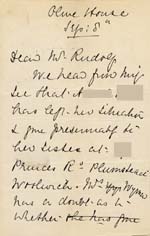 Olive House
Sep: 8th
Dear Mr. Rudolf
We hear from Miss
that A
has left her situation
& gone presumably to
her sister at
Princes Rd Plumstead
Woolwich. Mrs Wynne
has a doubt as to
whether she has gone